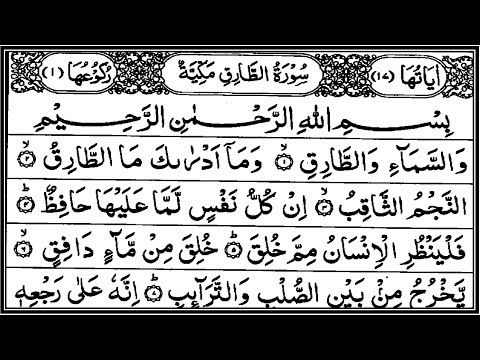 اٰيَاتُهَا (١٧) سُوْرَةُ الطَّارِقِ مَكِّيَّةٌ رُكُوْعُهَا (١)
بِسْمِ اللهِ الرَّحْمٰنِ الرَّحِيْمِ
وَالسَّمَآءِ وَالطَّارِقِ ۙ﴿١﴾ وَمَآ اَدْرٰىكَ مَا الطَّارِقُ ۙ﴿٢﴾
النَّجْمُ الثَّاقِبُ ۙ﴿٣﴾ اِنْ كُلُّ نَفْسٍ لَّمَّا عَلَيْهَا حَافِظٌ ؕ﴿٤﴾
فَلْيَنْظُرِ الْاِنْسَانُ مِمَّ خُلِقَ ؕ﴿٥﴾ خُلِقَ مِنْ مَّآءٍ دَافِقٍ ۙ﴿٦﴾
يَّخْرُجُ مِنْۢ بَيْنِ الصُّلْبِ وَالتَّرَآئِبِ ؕ﴿٧﴾ اِنَّهٗ عَلٰى رَجْعِهٖ